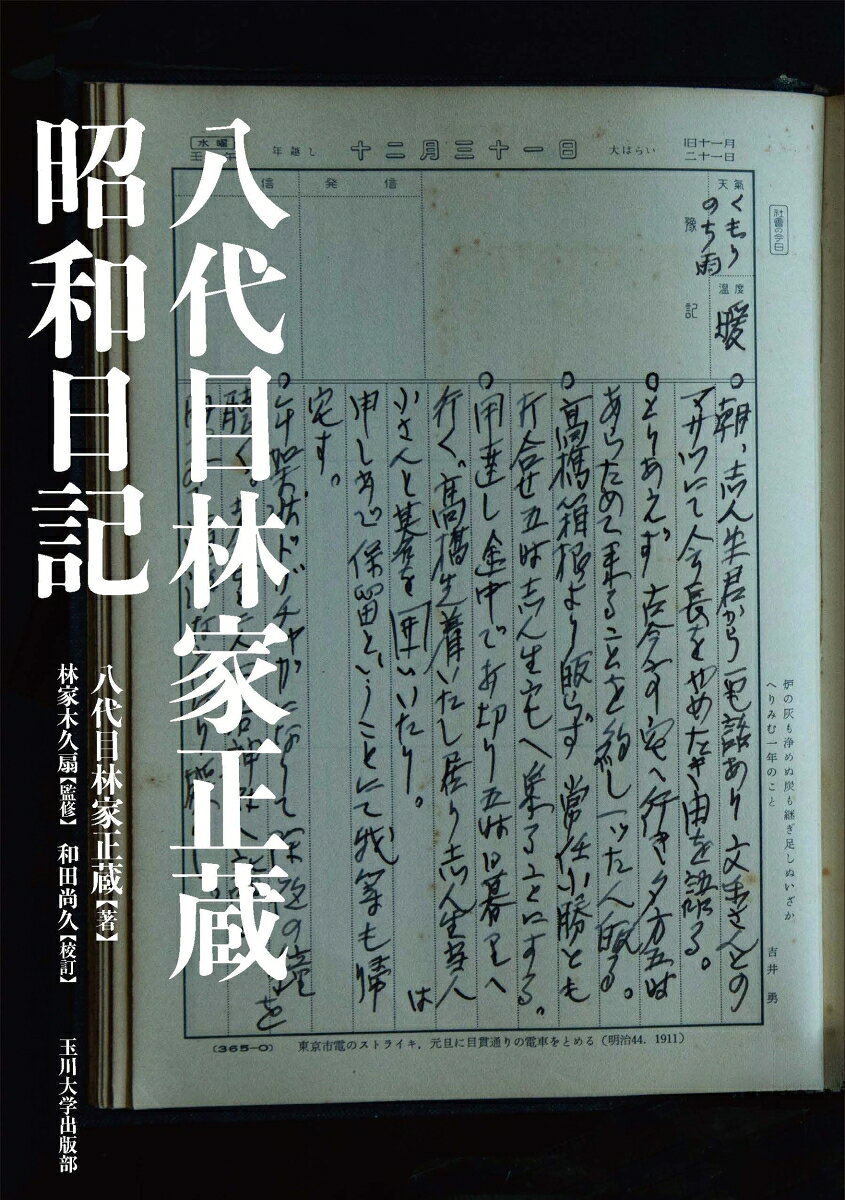 八代目林家正蔵
昭和日記
八代目林家正蔵【著】
林家木久扇【監修】 和田尚久【校訂】
玉川大学出版部
旧十一月
二十一日
十二月三十一日
大はらい
年越し
水曜
壬午
社會の今日
天氣
くもり
のち雨
温度
暖
豫記
発信
信
○朝、志ん生君から電話あり 文楽さんとの
マサツにて会長をやめたき由を語る。
○とりあえず 古今亭宅へ行き夕方五時
あらためて来ることを約し一ッた人帰る。
○高橋箱根より帰らず 常任小勝とも
打合せ五時志ん生宅へ集ることにする。
○用達し途中で打切り五時日暮里へ
行く。高橋先着いたし居り志ん生夫人は
小さんと碁を囲いいたり。
申しあで保留ということにて我等も帰
宅す。
聴く。
炉の灰も浄めぬ炭も継ぎ足しぬいざか
へりみむ一年のこと
吉井 勇
(365-0) 東京市電のストライキ，元旦に目貫通りの電車をとめる (明治44. 1911)